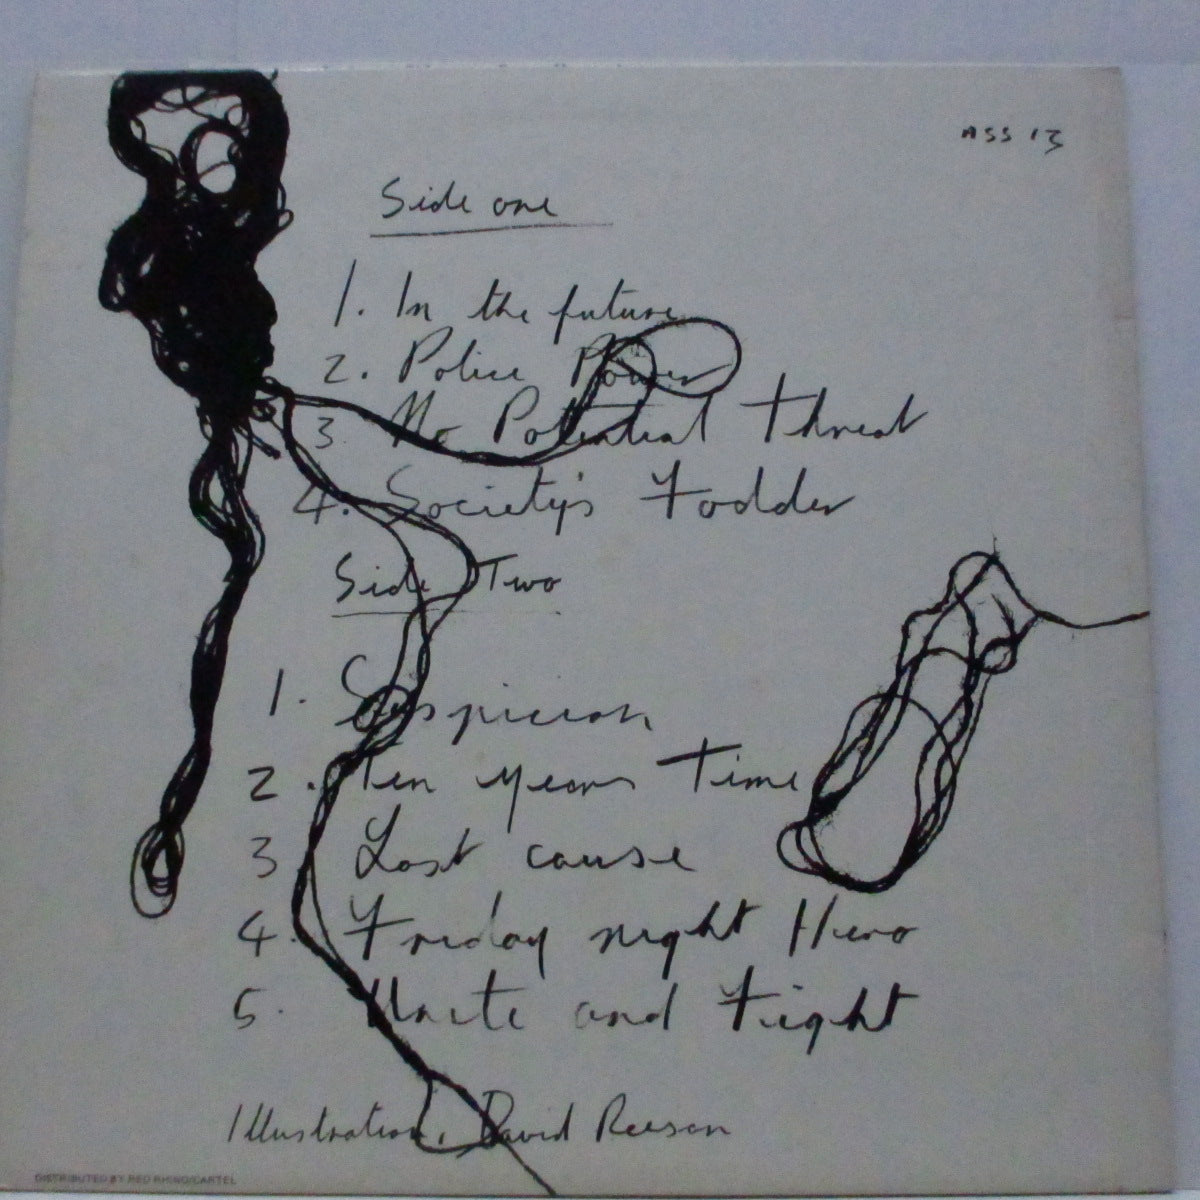 ASS 13
Side one
1. In the future
2. Police Power
3. No Potential Threat
4. Society's Fodder
Side Two
1. Suspicion
2. Ten years Time
3 Lost cause
4. Friday night Hero
5. Unite and Fight
Illustration, David Reeson
DISTRIBUTED BY RED RHINO/CARTEL